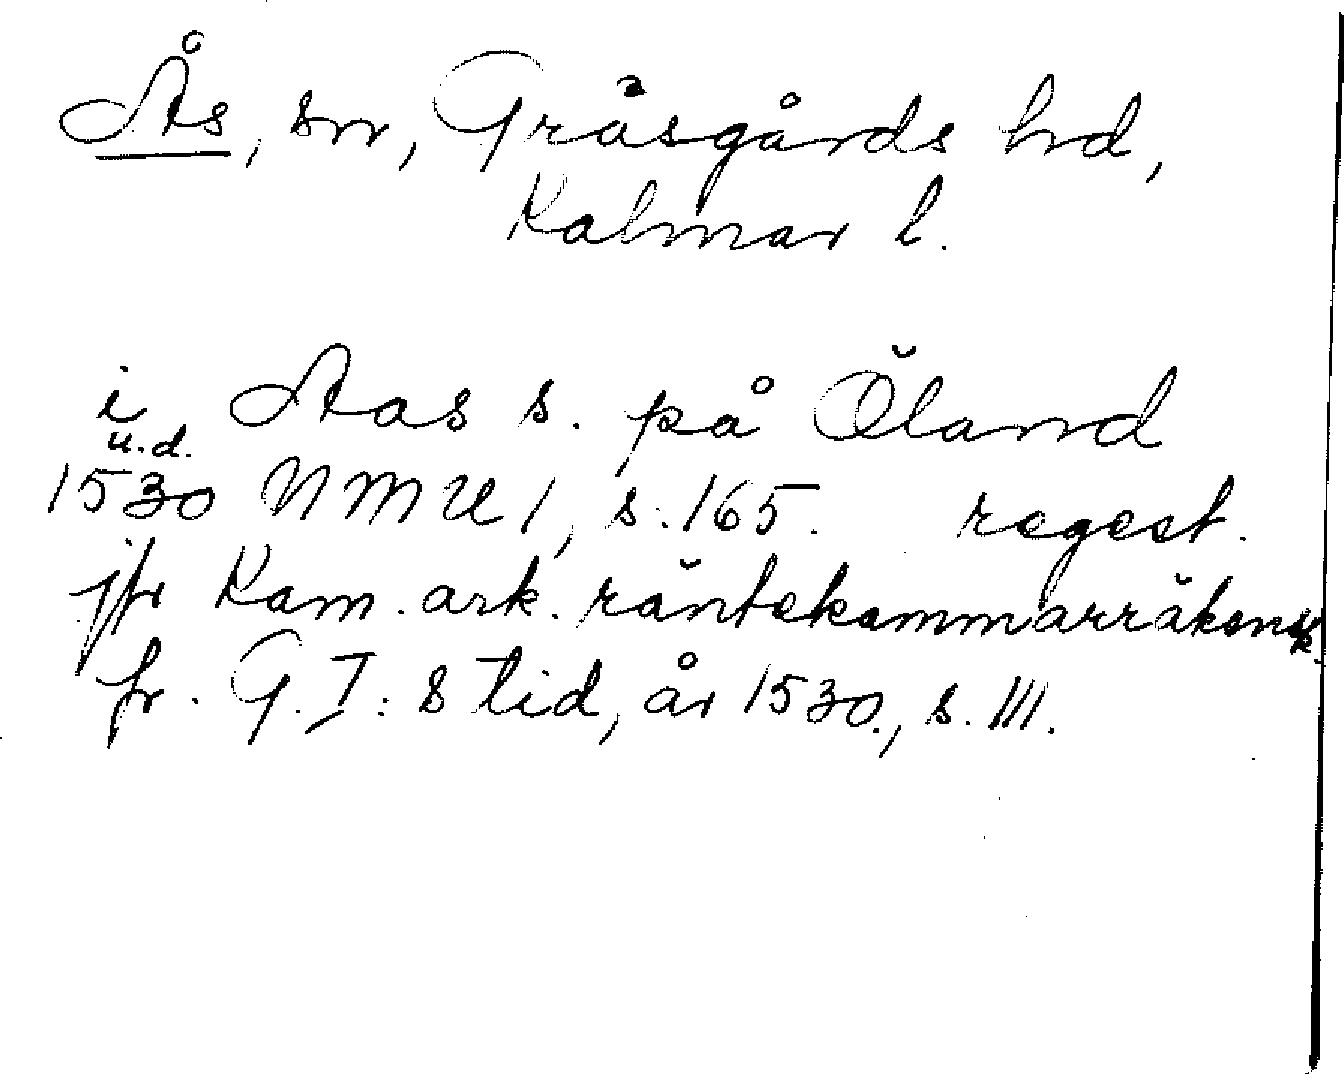 Ås, sn, Gräsgårds hd,
Kalmar l.
i Aas s. på Öland
u.d.
1530 NMU 1, s. 165. regest.
jfr Kam. ark. räntekammarräkensk.
fr. G. I: s tid, år 1530., s. 111.